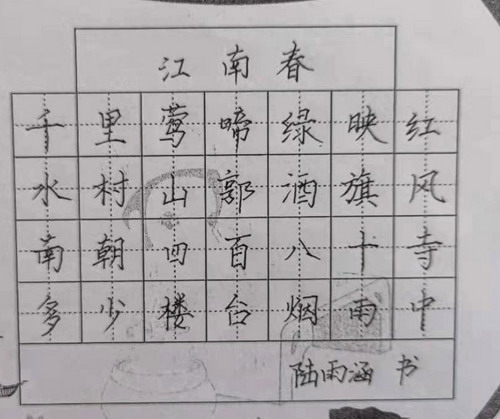 江南春
千里莺啼绿映红
水村山郭酒旗风
南朝四百八十寺
多少楼台烟雨中
陆雨涵 书